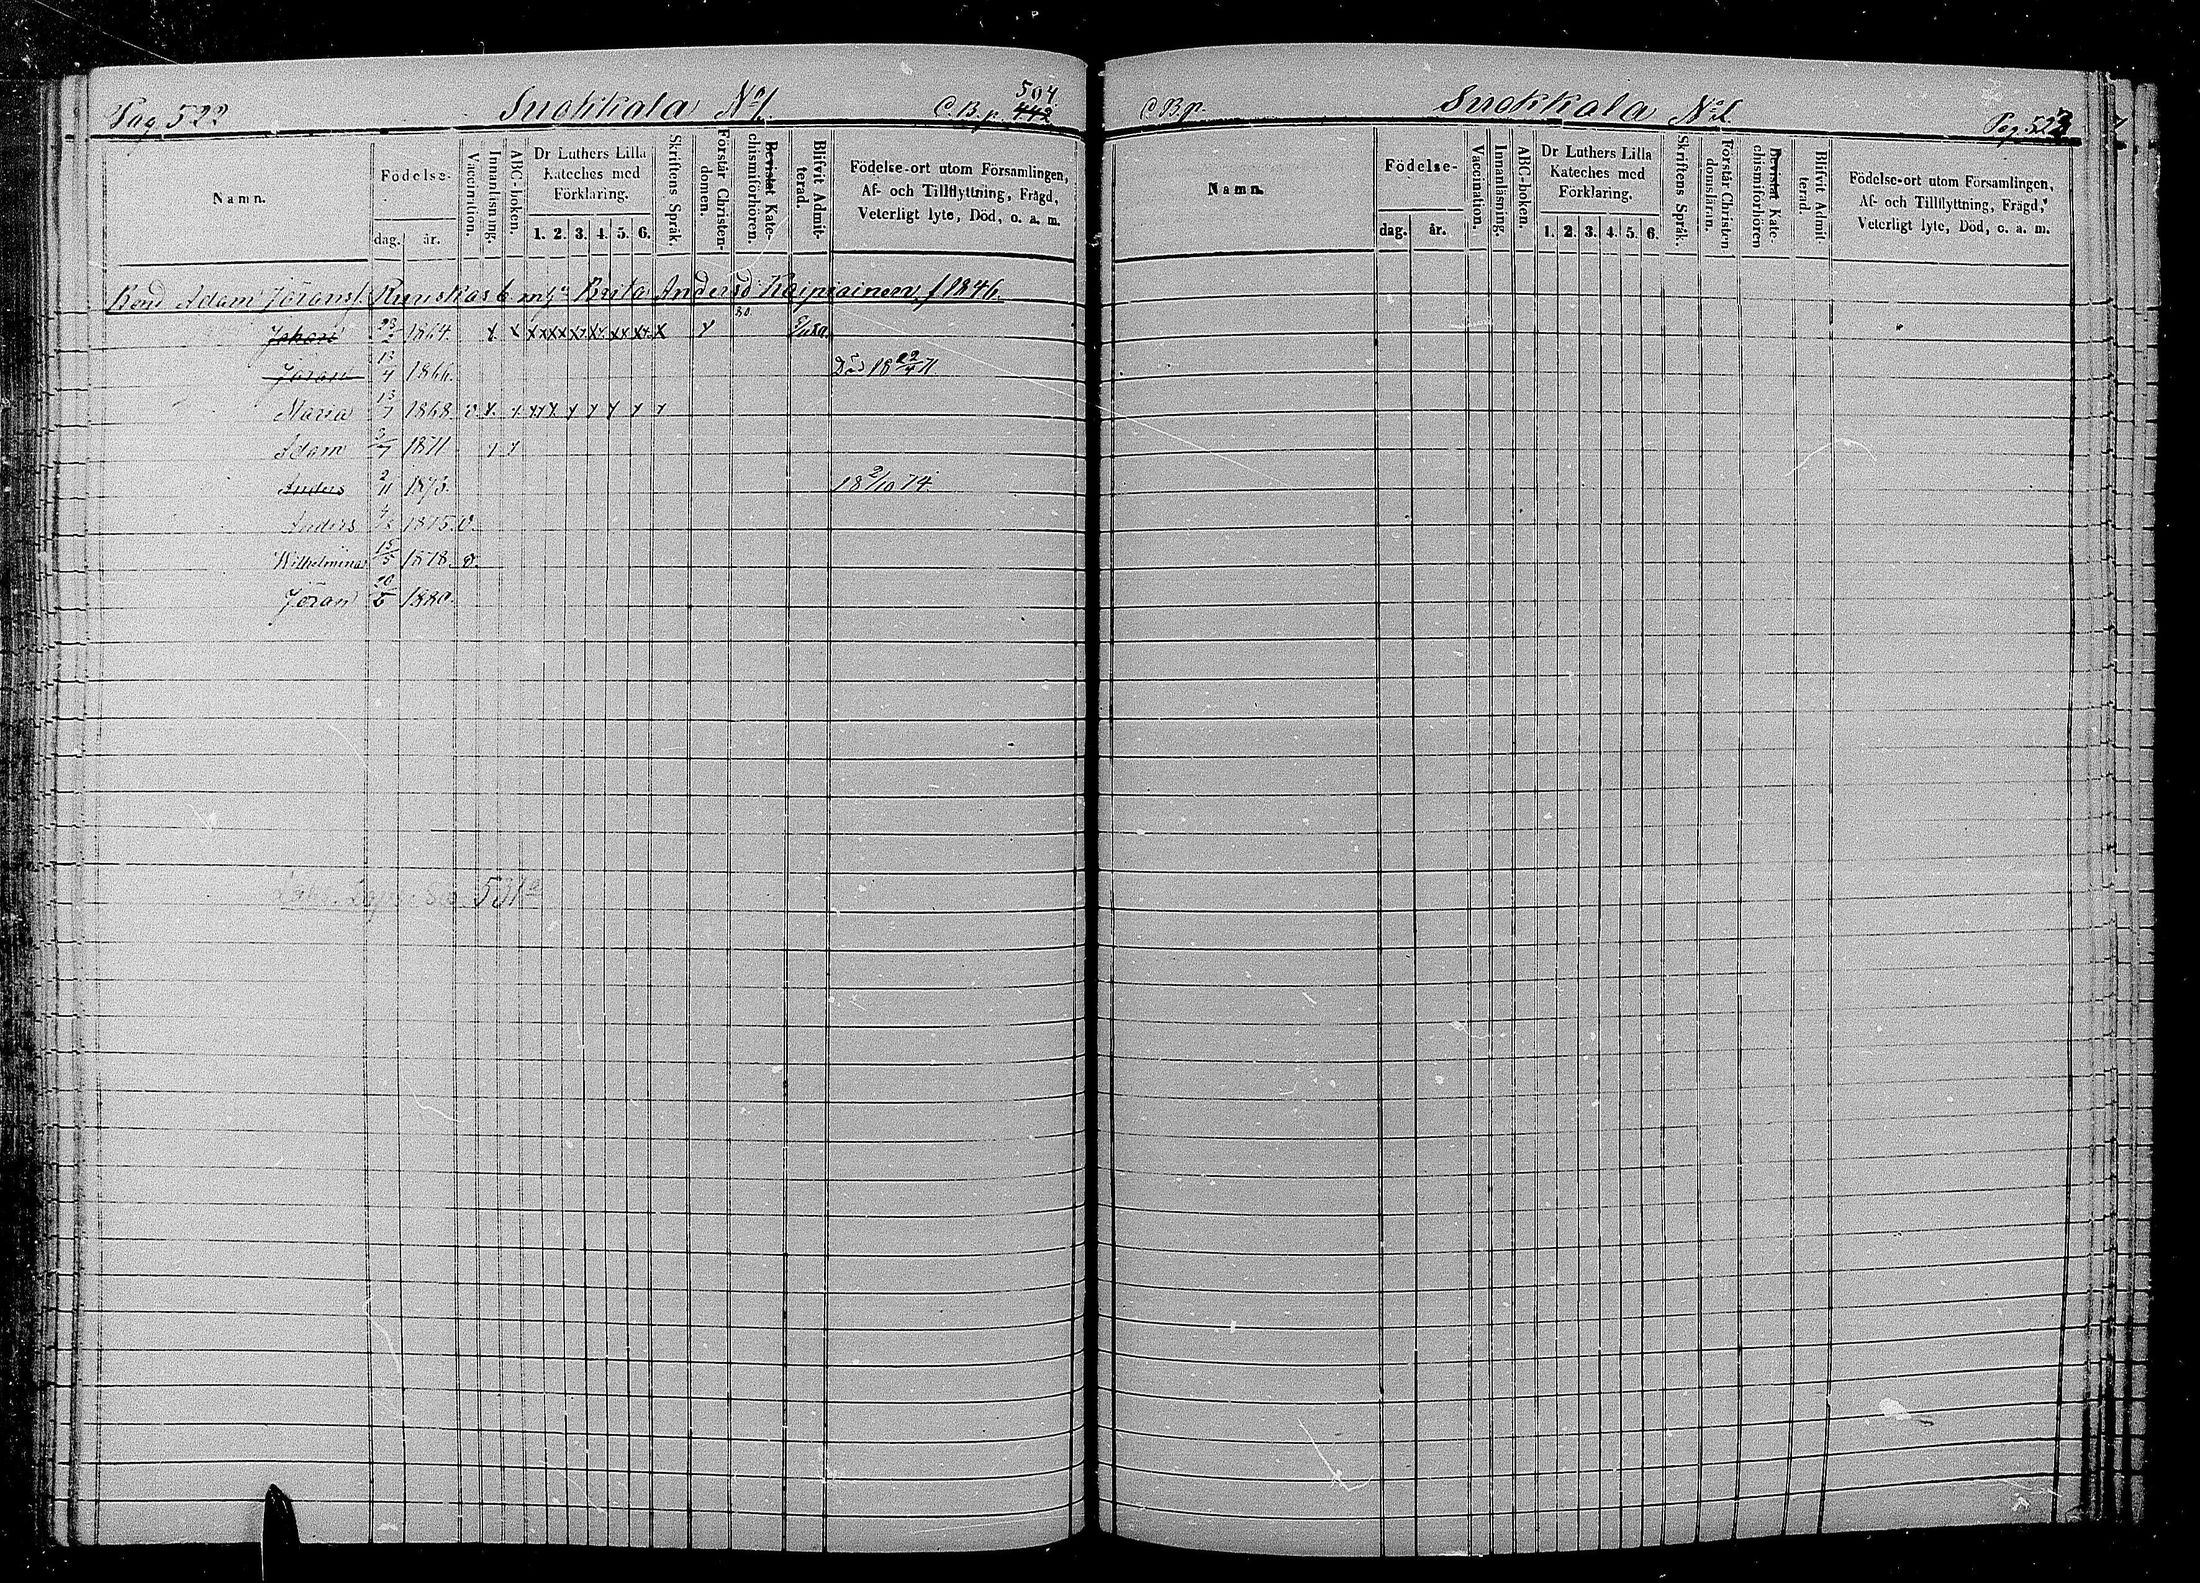 Pag 522 Suokkala No 1. C. B. p. 442 504
Namn. Födelse- dag. år. Vaccination. Innanläsning. ABC-boken. Dr Luthers Lilla Kateches med Förklaring. 1. 2. 3. 4. 5. 6. Skriftens Språk. Förstår Christendomen. Bevistat Katechismiförhören. Blifvit Admitterad. Födelse-ort utom Församlingen, Af- och Tillflyttning, Frägd, Veterligt lyte, Död, o. a. m.
Bond Adam Jöranss. Brita Andersd Kaipiainen f 1846.
Johan 22/2 1864. x x x x x x x x x x x x x x x y
Jöran 13/4 1866. Död 18 22/4 71
Maria 13/7 1868. v x x x x x x x x x x
Adam 3/7 1871 x x
Anders 2/11 1873. 18 2/10 74.
Anders 1875. v.
Wilhelmina 15/5 1878. v.
Jöran 20/5 1880.
531
C. B. p. Suokkala No 1 Pag. 523
Namn. Födelse- dag. år. Vaccination. Innanläsning. ABC-boken. Dr Luthers Lilla Kateches med Förklaring. 1. 2. 3. 4. 5. 6. Skriftens Språk. Förstår Christendomsläran. Bevistat Katechismiförhören Blifvit Admitterad. Födelse-ort utom Församlingen, Af- och Tillflyttning, Frägd, Veterligt lyte, Död, o. a. m.